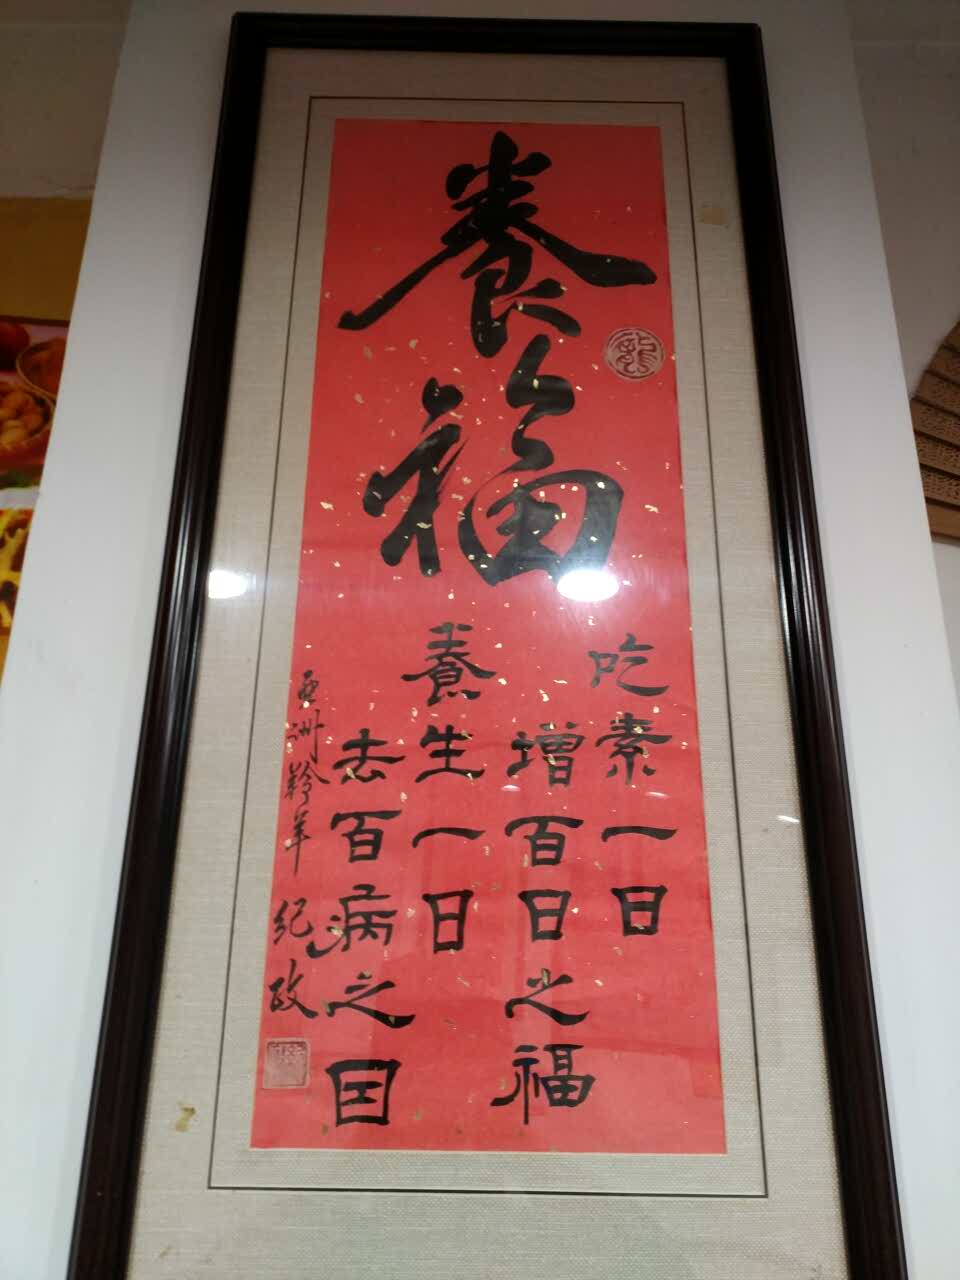 養福
吃素一日
增百日之福
養生一日
去百病之因
亞洲羚羊 紀政